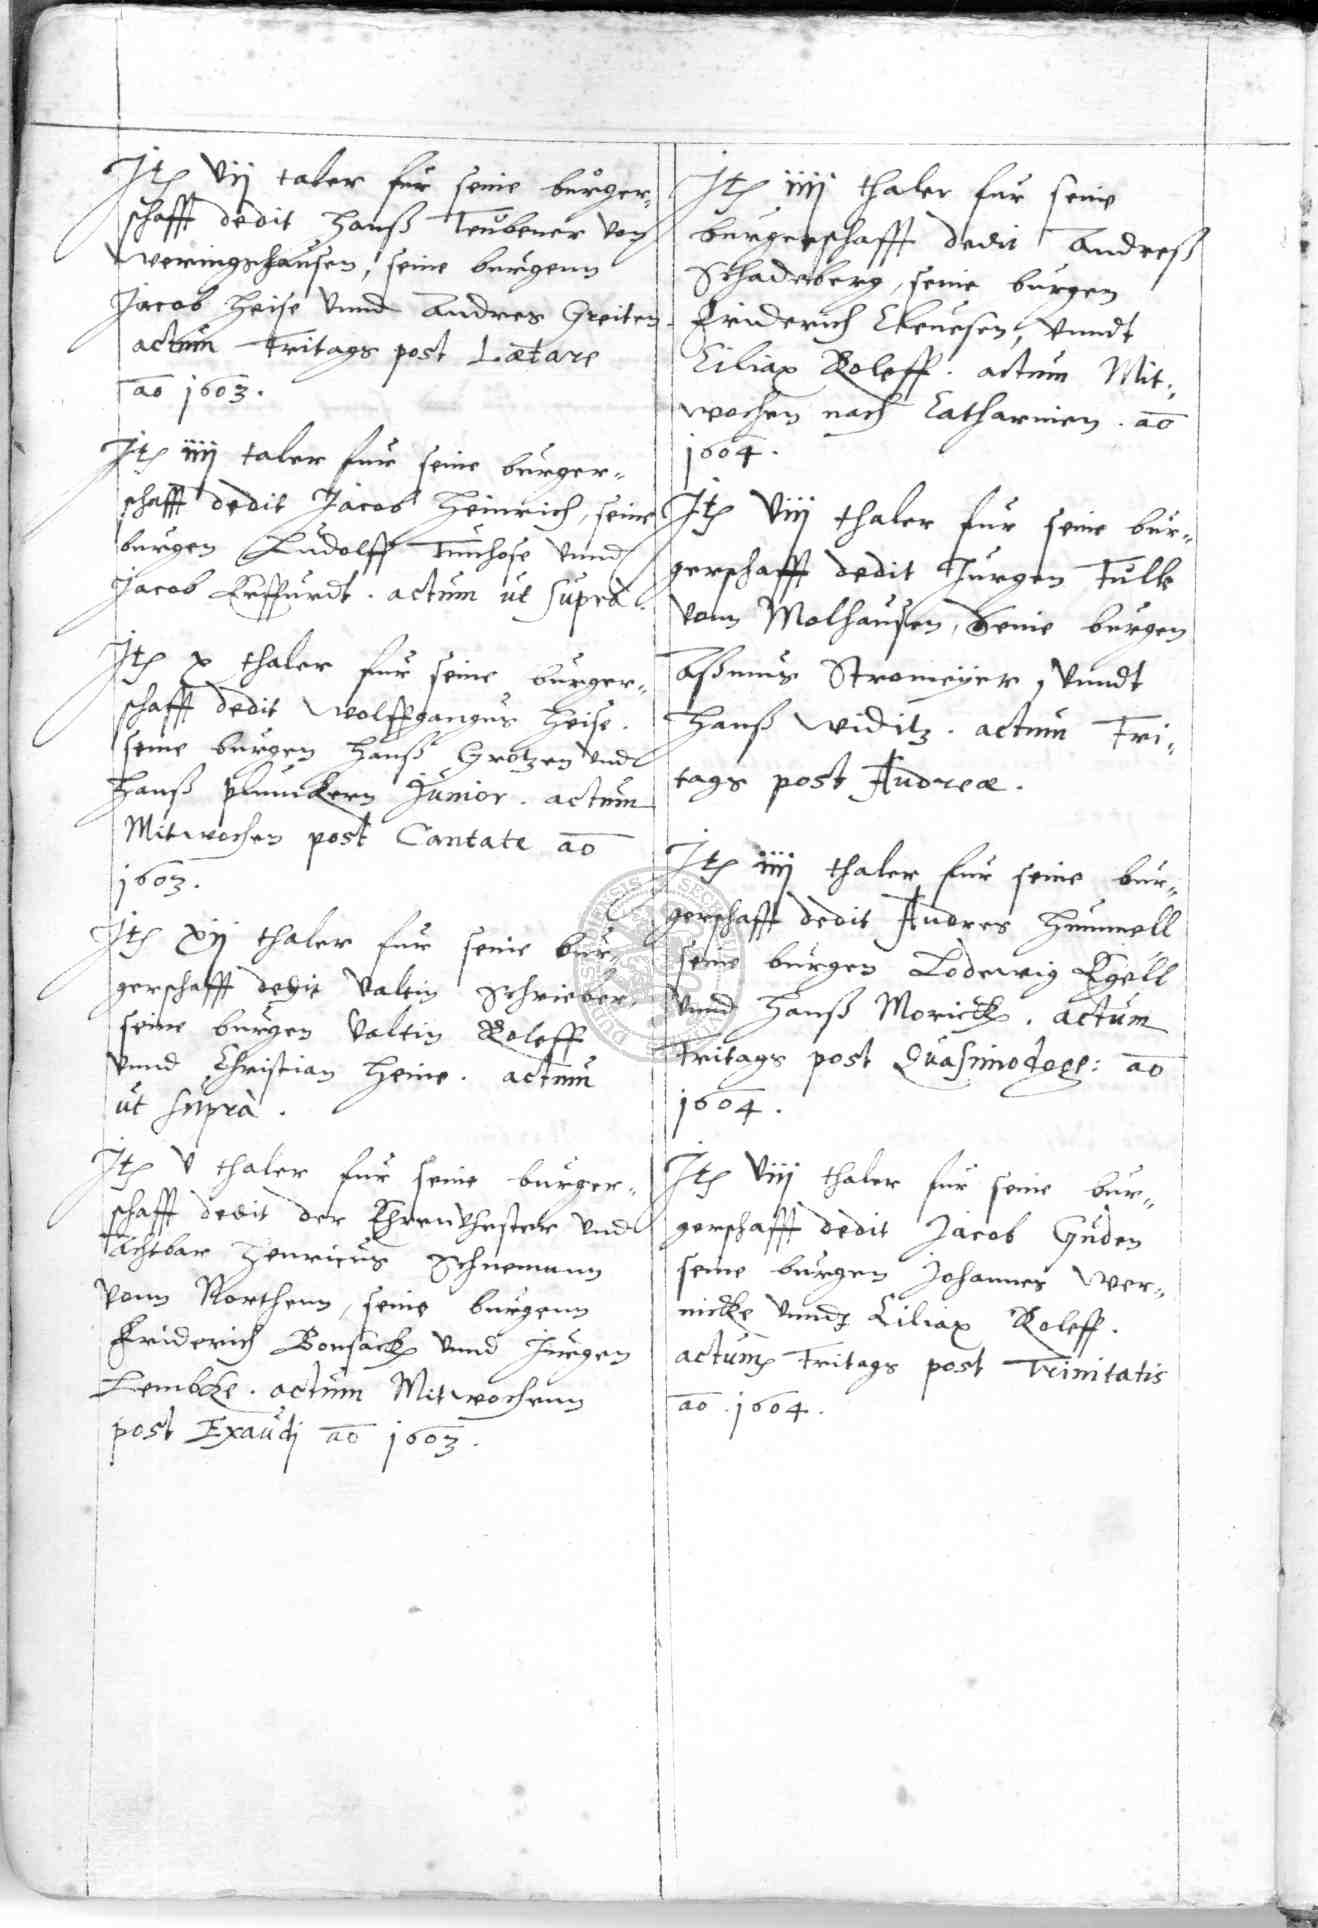 Jtē vij taler fur seine burger„
schafft dedit Hanß Teubener von
Weringshausen, seine burgenn
Jacob Heise vnnd Andres Greiten
actum Fritags post Lætare
ao 1603.
Jtē iiij taler fur seine burger„
schafft dedit Jacob Heinrich, seine
burgen Ludolff Tunhose vnnd
Jacob Erffurdt. actum ut supra.
Jtē x thaler fur seine burger„
schafft dedit Wolffgangus Heise.
seine burgen Hanß Grotzen vnd
Hanß plunckern Junior. actum
Mitwochen post Cantate ao
1603.
Jtē xij thaler fur seine bur„
gerschafft dedit Valtin Schrieber.
seine burgen Valtin Roleff
vnnd Christian Heine. actum
ut supra.
Jtē v thaler fur seine burger„
schafft dedit der Ehrnvhester vnd
Achtbar Henricus Schnemann
vonn Northenn, seine burgenn
Friderich Bonsack vnnd Jurgen
Lembcke. actum Mitwochenn
post Exaudj ao 1603.
Jtē iiij thaler fur seine
burgerschafft dedit Andreß
Schadeberg, seine burgen
Friderich Ekeuesen, vnndt
Ciliax Roleff. actum Mit„
wochen nach Catharinen. ao
1604.
Jtē viij thaler fur seine bur„
gerschafft dedit Jurgen Tulle
vonn Molhausen, Seine burgen
Aßmus Stromeyer, vnndt
Hanß Widitz. actum Fri„
tags post Andreæ.
Jtē iiij thaler fur seine bur„
gerschafft dedit Andres Hummell
seine burgen Lodewig Egell
vnnd Hanß Morick. actum
Fritags post Quasimodoge: ao
1604.
Jtē viij thaler fur seine bur„
gerschafft dedit Jacob Guden
seine burgen Johannes Wer„
nicke vnndt Ciliax Roleff.
actum Fritags post Trinitatis
ao 1604.